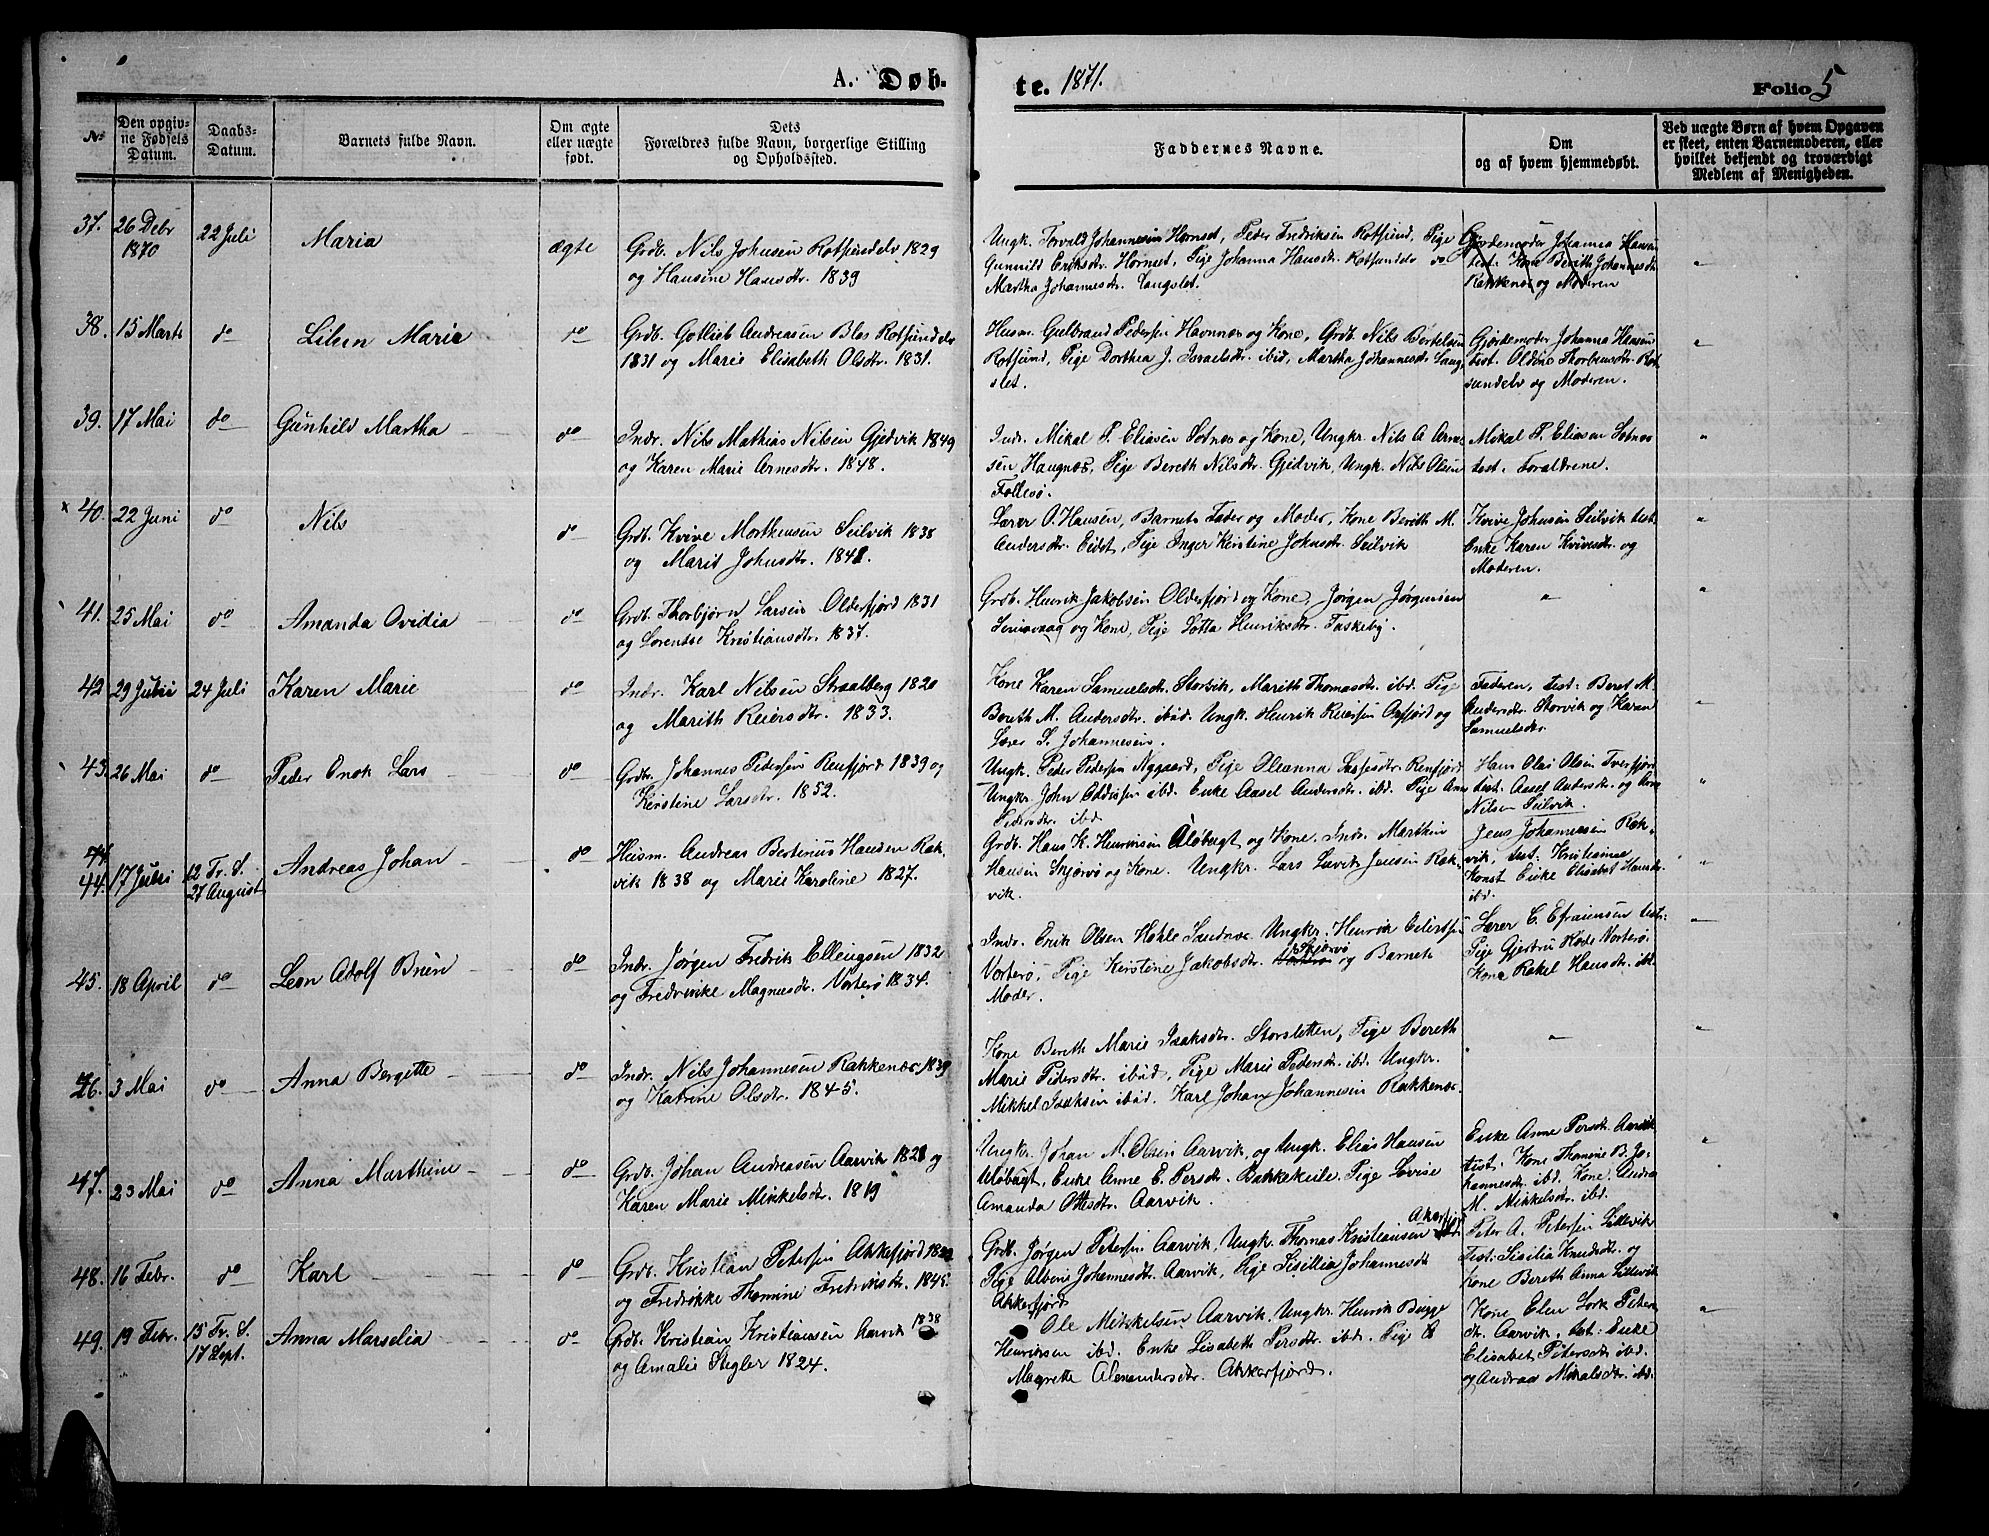 A. Døb-
te. 1871.
Folio 5
No
Den opgiv-
ne Fødsels
Datum.
Daabs-
Datum.
Barnets fulde Navn.
Om ægte
eller uægte
født.
Dets
Forældres fulde Navn, borgerlige Stilling
og Opholdssted.
Faddernes Navne.
Om
og af hvem hjemmedøbt.
Ved uægte Børn af hvem Opgaven
er skeet, enten Barnemoderen, eller
hvilket bekjendt og troværdigt
Medlem af Menigheden.
37. 26 Debr 22 Juli Maria ægte Grdb. Nils Johnsen Rotsundelv 1829
1870
og Hansine Hansdtr. 1839
Ungk. Torvald Johannesen Hornset, Peder Fredriksen Rotsund, Pige
Gunnild Eriksdtr. Hornset, Pige Johanna Hansdtr. Rotsundelv do
Martha Johannesdtr. Langslet.
Gjordemoder Johanna Hansen
test. Kone Berith Johannesdt
Rakkenæs og Moderen
"
38. 15 Marts do Lilein Marie do Grdb. Gotlieb Andreasen Blos Rotsundelv
1831 og Marie Elisabeth Olsdtr. 1831.
Husm. Gulbrand Pedersen Havnnæs og Kone, Grdb. Nils Bertelsen
Rotsund, Pige Dorthea J. Israelsdtr. ibid, Martha Johannesdt. Lang-
slet.
Gjordemoder Johanna Hansen
test. Oldine Thorbensdtr. Rot-
sundelv og Moderen.
"
39. 17 Mai do Gunhild Martha do Indr. Nils Mathias Nilsen Gjedvik 1849
og Karen Marie Arnesdtr. 1848.
Indr. Mikal P. Eliasen Sotnæs og Kone, Ungkr. Nils A Arne-
sen Haugnæs, Pige Bereth Nilsdtr. Gjedvik, Ungk. Nils Olsen
Follesø.
Mikal P. Eliasen Sotnæs
test. Forældrene.
"
x 40. 22 Juni do Nils do Grdb. Kvive Morthensen Seilvik 1838
og Marit Johnsdtr. 1848.
Lærer O. Hansen, Barnets Fader og Moder, Kone Bereth M.
Andersdtr. Eidet, Pige Inger Kirstine Johnsdtr. Seilvik
Kvive Johnsen Seilvik test.
Enke Karen Kvivesdtr. og
Moderen.
"
41. 25 Mai do Amanda Ovidia do Grdb. Thorbjørn Larsen Olderfjord 1831
og Lorentse Kristiansdtr. 1837.
Grdb. Henrik Jakobsen Olderfjord og Kone, Jørgen Jørgensen
og Kone, Pige Lotta Henriksdtr. Taskeby.
"
"
42 29 Juni 24 Juli Karen Marie do Indr. Karl Nilsen Straalberg 1820
og Marith Reiersdtr. 1833.
Kone Karen Samuelsdtr. Storvik, Marith Thomasdtr. ibd. Pige
Bereth M. Andersdtr. ibid. Ungk. Henrik Reiersen Oxfjord og
Lærer S. Johannesen.
Faderen, test: Beret M.
Andersdtr. Storvik og Karen
Samuelsdtr.
"
43. 26 Mai do Peder Enok Lars do Grdbr. Johannes Pedersen Reinfjord 1839 og
Kirstine Larsdtr. 1852.
Ungk. Peder Pedersen Nygaard, Pige Oleanna Lassesdtr. Reinfjord
Ungkr John ibd. Enke Aasel Andersdtr. ibd. Pige Ane
Pedersdtr. ibd.
Hans Olai Olsen Tverfjord
test. Aasel Andersdtr. og Arne
Nilsen Seilvik.
"
44. 17 Juni 12 Tr. S. Andreas Johan do Husm. Andreas Bertinius Hansen Rak-
27 August
vik 1838 og Marie Karoline 1827.
Grdb. Hans K. Henriksen Aløbugt og Kone. Indr. Marthin
Hansen Skjærvø og Kone. Ungkr. Lars Luvik Jensen Rak-
vik.
Jens Johannesen Rak-
vik, test: Kristianna
Konst Enke Elisabet Hansdtr
ibd.
"
45. 18 April do Leon Adolf Brun do Indr. Jørgen Fredrik Ellingsen 1832
og Fredrikke Magnusdtr. Vorterø 1834.
Indr. Erik Olsen Hohle Sandnæs. Ungkr. Henrik Eilertsen
Vorterø, Pige Kirstine Jakobsdtr. Skjærvø og Barnets
Moder.
Lærer C. Efraimsen test:
Pige Gjertru Hode Vorterø.
Kone Rakel Hansdtr. ibd.
"
46. 3 Mai do Anna Bergette do Indr. Nils Johannesen Rakkenæs 1839
og Katrine Olsdtr. 1845.
Kone Bereth Marie Isaksdtr. Storsletten, Pige Bereth
Marie Pedersdtr. ibid, Pige Marie Pedersdtr. ibd. Ungkr.
Mikkel Isaksen ibid. Karl Johan Johannesen Rakkenæs.
"
"
47. 23 Mai do Anna Marthine do Grdb. Johan Andreasen Aarvik 1828 og
Karen Marie Mikkelsdtr. 1819
Ungkr. Johan M. Olsen Aarvik, og Ungk. Elias Hansen
Aløbugt, Enke Anne E. Persdtr. Bakkekeile. Pige Lovise
Amanda Ottesdtr. Aarvik.
Enke Anne Persdtr Aarvik
test. Kone Thomine B. Jo-
hannesdtr. ibd. Kone. Andrea
M. Mikkelsdtr. ibd.
"
48. 16 Febr. do Karl do Grdb. Kristian Petersen Akkefjord 1822
og Fredrikke Thomine Fredriksdtr. 1845.
Grdb. Jørgen Petersen Aarvik, Ungk. Thomas Kristiansen Akkerfjord
Pige Albine Johannesdtr. Aarvik, Pige Sisillia Johannesdt
Akkerfjord
Peter A. Petersen Lillevik
Test: Sisilia Knudsdtr. og
Kone Bereth Anna Lillevik
49. 19 Febr. 15 Tr. S. Anna Marselia do Grdb. Kristian Kristiansen Aarvik 1838
17 Sept.
og Amalie Stegler 1824.
Ole Mikkelsen Aarvik, Ungkr. Henrik Bugge
Henriksen ibd. Enke Lisabeth Persdtr. ibd. Pige
Magrette Alexandersdtr. Akkerfjord.
Kone Elen Lork Peters-
dtr. Aarvik, test: Enke
Elisabet Petersdtr. ibd.
og Andrea Mikalsdtr. ibd.
"